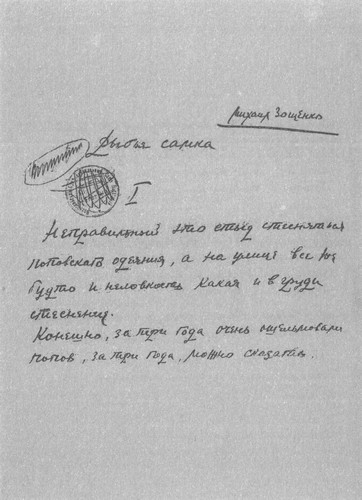 Михаил Зощенко
Рыбья самка
I
Неправильный это стыд стесняться
поповского одеяния, а на улице все же
будто и неловкость какая и в груди
стеснение.
Конешно, за три года очень ошельмовали
попов, за три года, можно сказать.